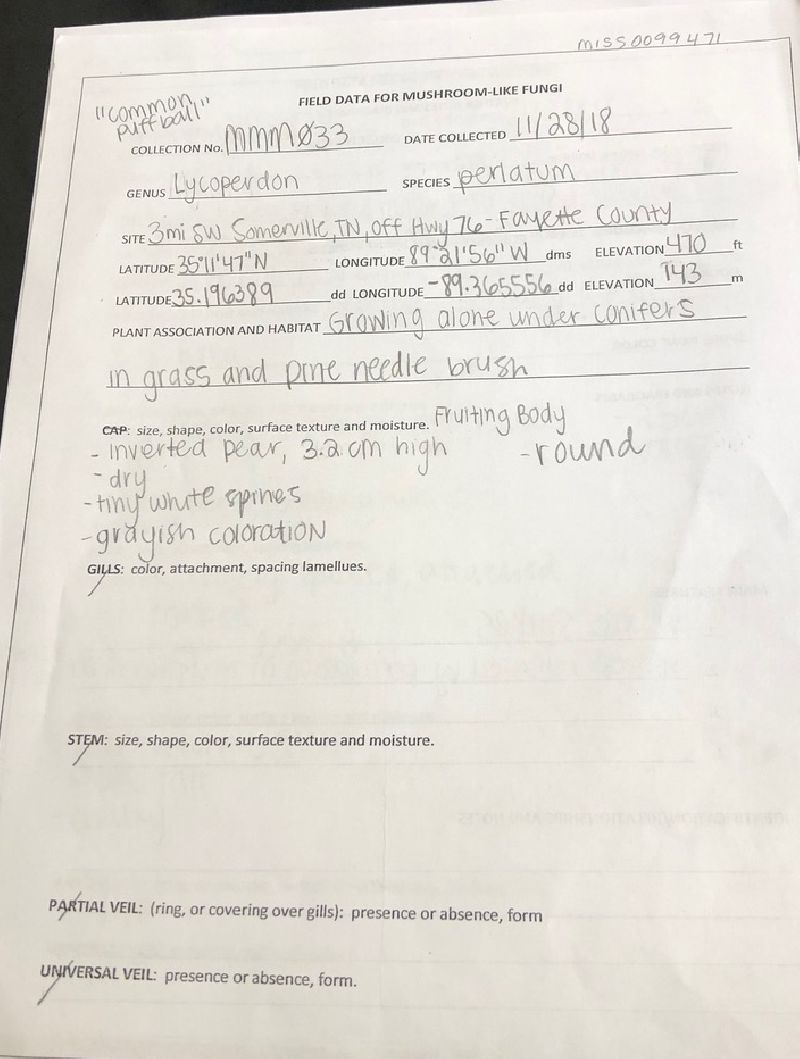 MISS0099471
"common
puffball"
FIELD DATA FOR MUSHROOM-LIKE FUNGI
COLLECTION No. MMMØ33 DATE COLLECTED 11/28/18
GENUS Lycoperdon SPECIES perlatum
SITE 3mi SW Somerville, TN, off Hwy 76 - Fayette County
LATITUDE 35°11'47"N LONGITUDE 89°21'56"W dms ELEVATION 470 ft
LATITUDE 35.196389 dd LONGITUDE -89.365556 dd ELEVATION 143 m
PLANT ASSOCIATION AND HABITAT Growing alone under conifers
in grass and pine needle brush
CAP: size, shape, color, surface texture and moisture. Fruiting Body
- inverted pear, 3.2 cm high - round
- dry
- tiny white spines
- grayish coloration
GILLS: color, attachment, spacing lamellues.
STEM: size, shape, color, surface texture and moisture.
PARTIAL VEIL: (ring, or covering over gills): presence or absence, form
UNIVERSAL VEIL: presence or absence, form.